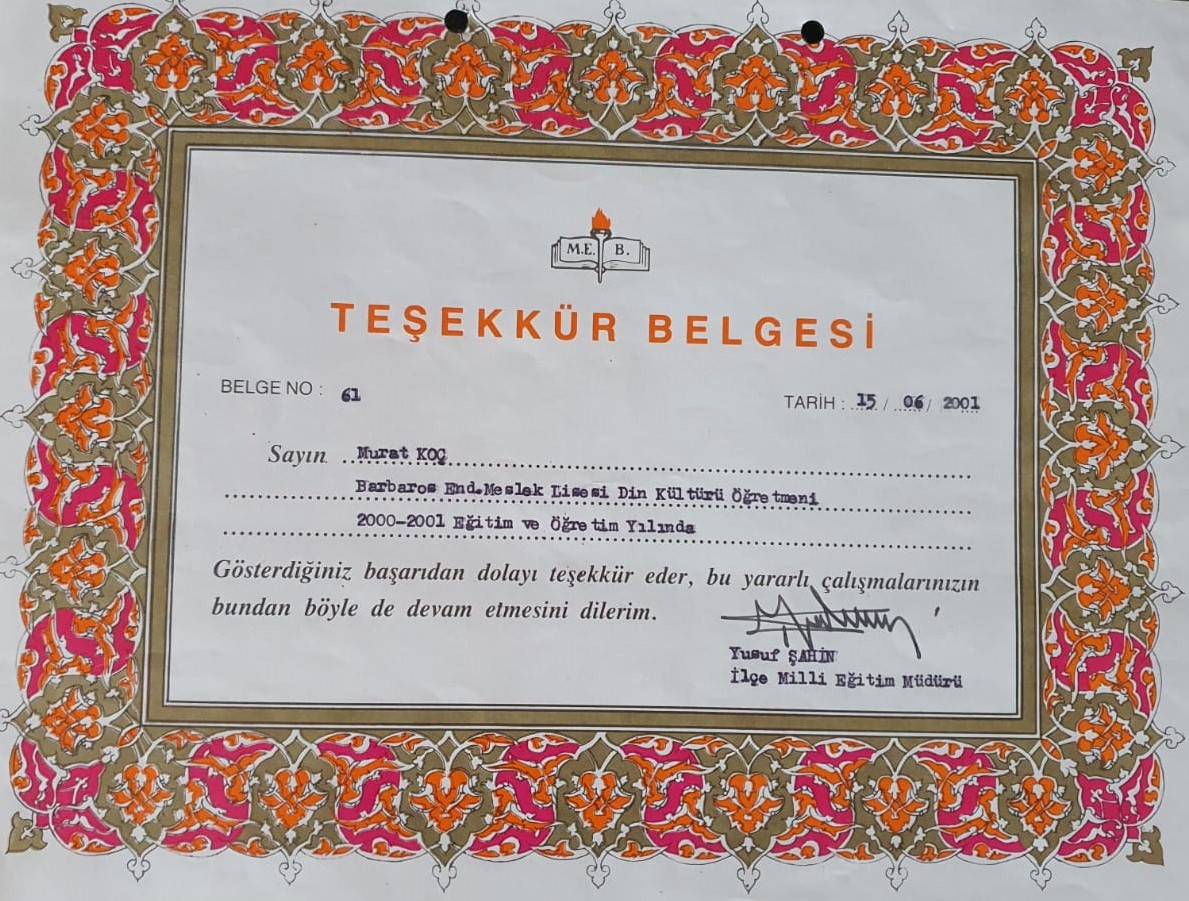 M.E. B.
TEŞEKKÜR BELGESİ
BELGE NO : 61
TARİH : 15 / 06 / 2001
Sayın Murat KOÇ
Barbaros End.Meslek Lisesi Din Kültürü Öğretmeni
2000-2001 Eğitim ve Öğretim Yılında
Gösterdiğiniz başarıdan dolayı teşekkür eder, bu yararlı çalışmalarınızın
bundan böyle de devam etmesini dilerim.
Yusuf ŞAHİN
İlçe Milli Eğitim Müdürü